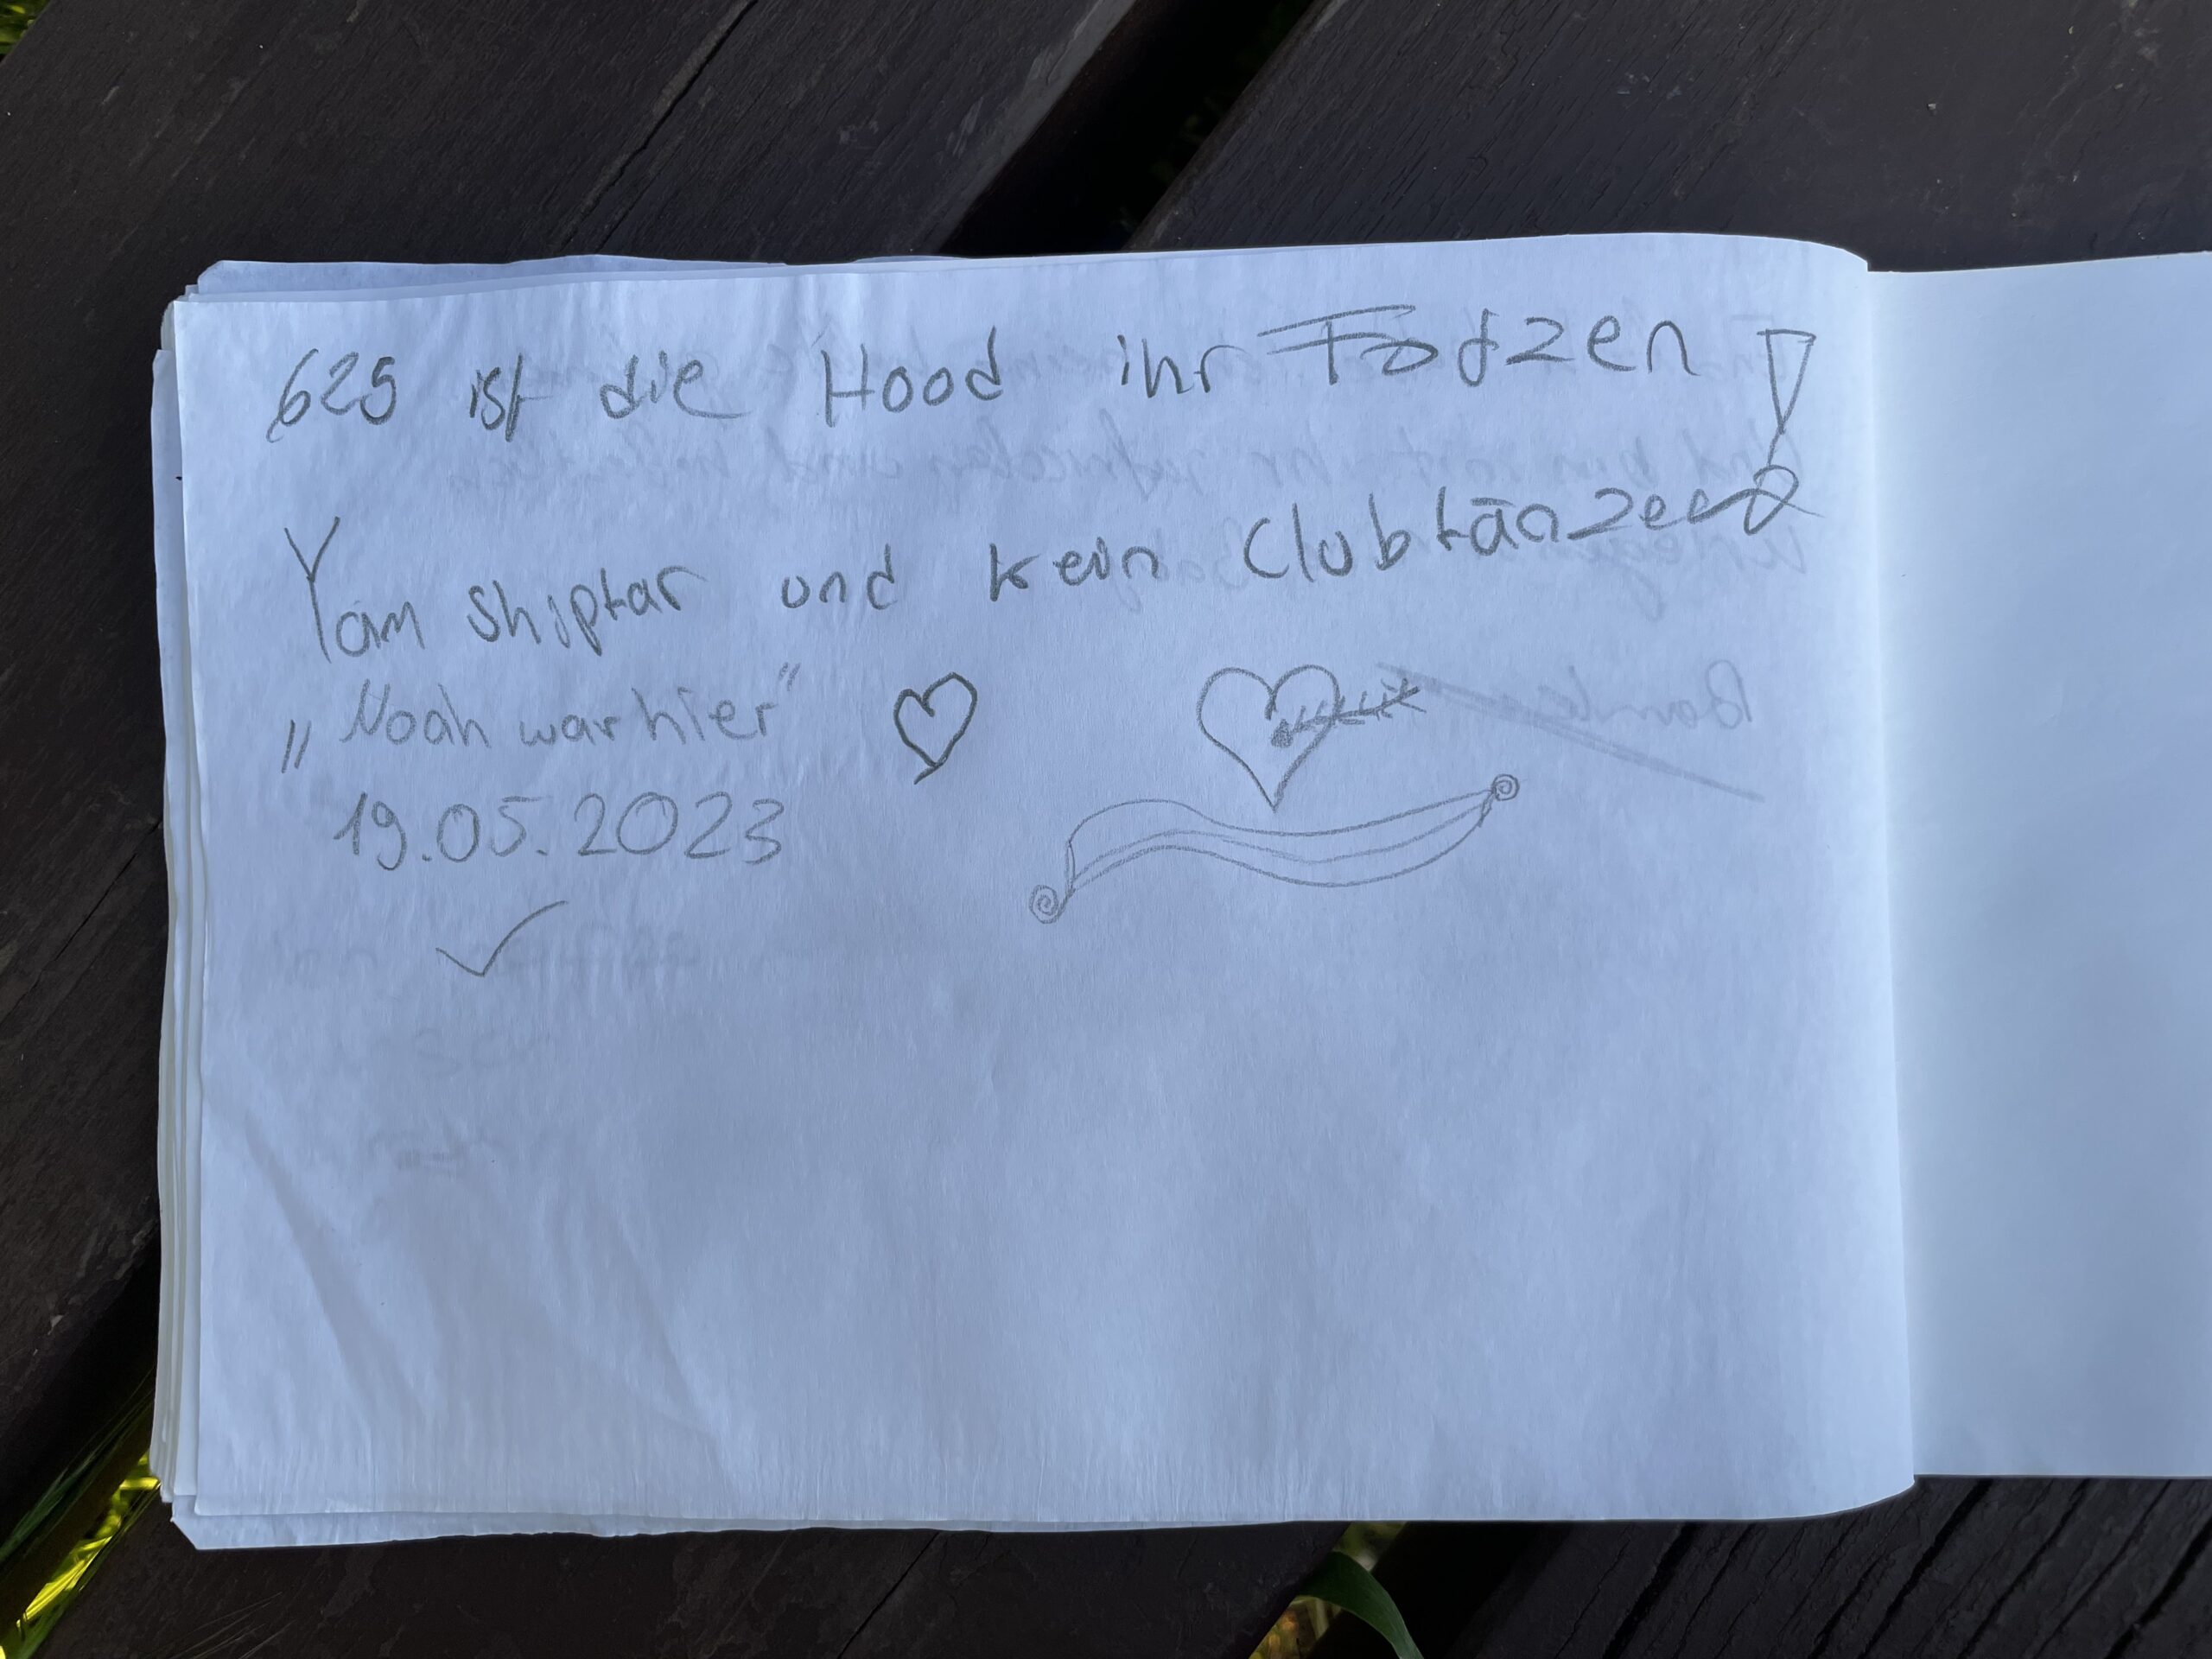 625 ist die Hood ihr Fotzen!
Yam shiptar und kein Clubtänzer
„Noah war hier"
19.05.2023